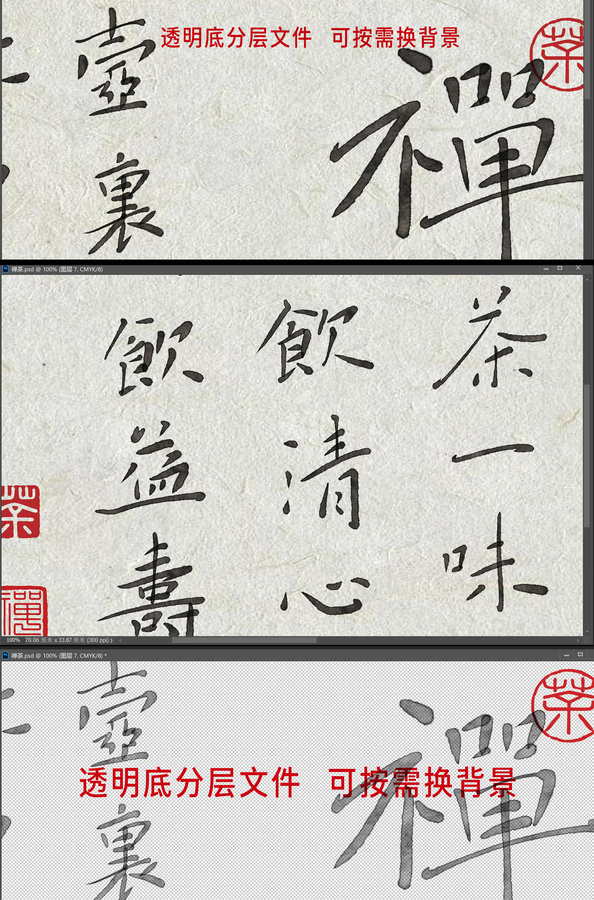 透明底分层文件 可按需换背景
茶
禪
壺裏
禅茶.psd @ 100% (图层 7, CMYK/8)
茶一味
飲清心
飲益壽
茶
禪
100% 70.06 厘米 x 33.87 厘米 (300 ppi)
禅茶.psd @ 100% (图层 7, CMYK/8) *
茶
禪
壺裏
透明底分层文件 可按需换背景